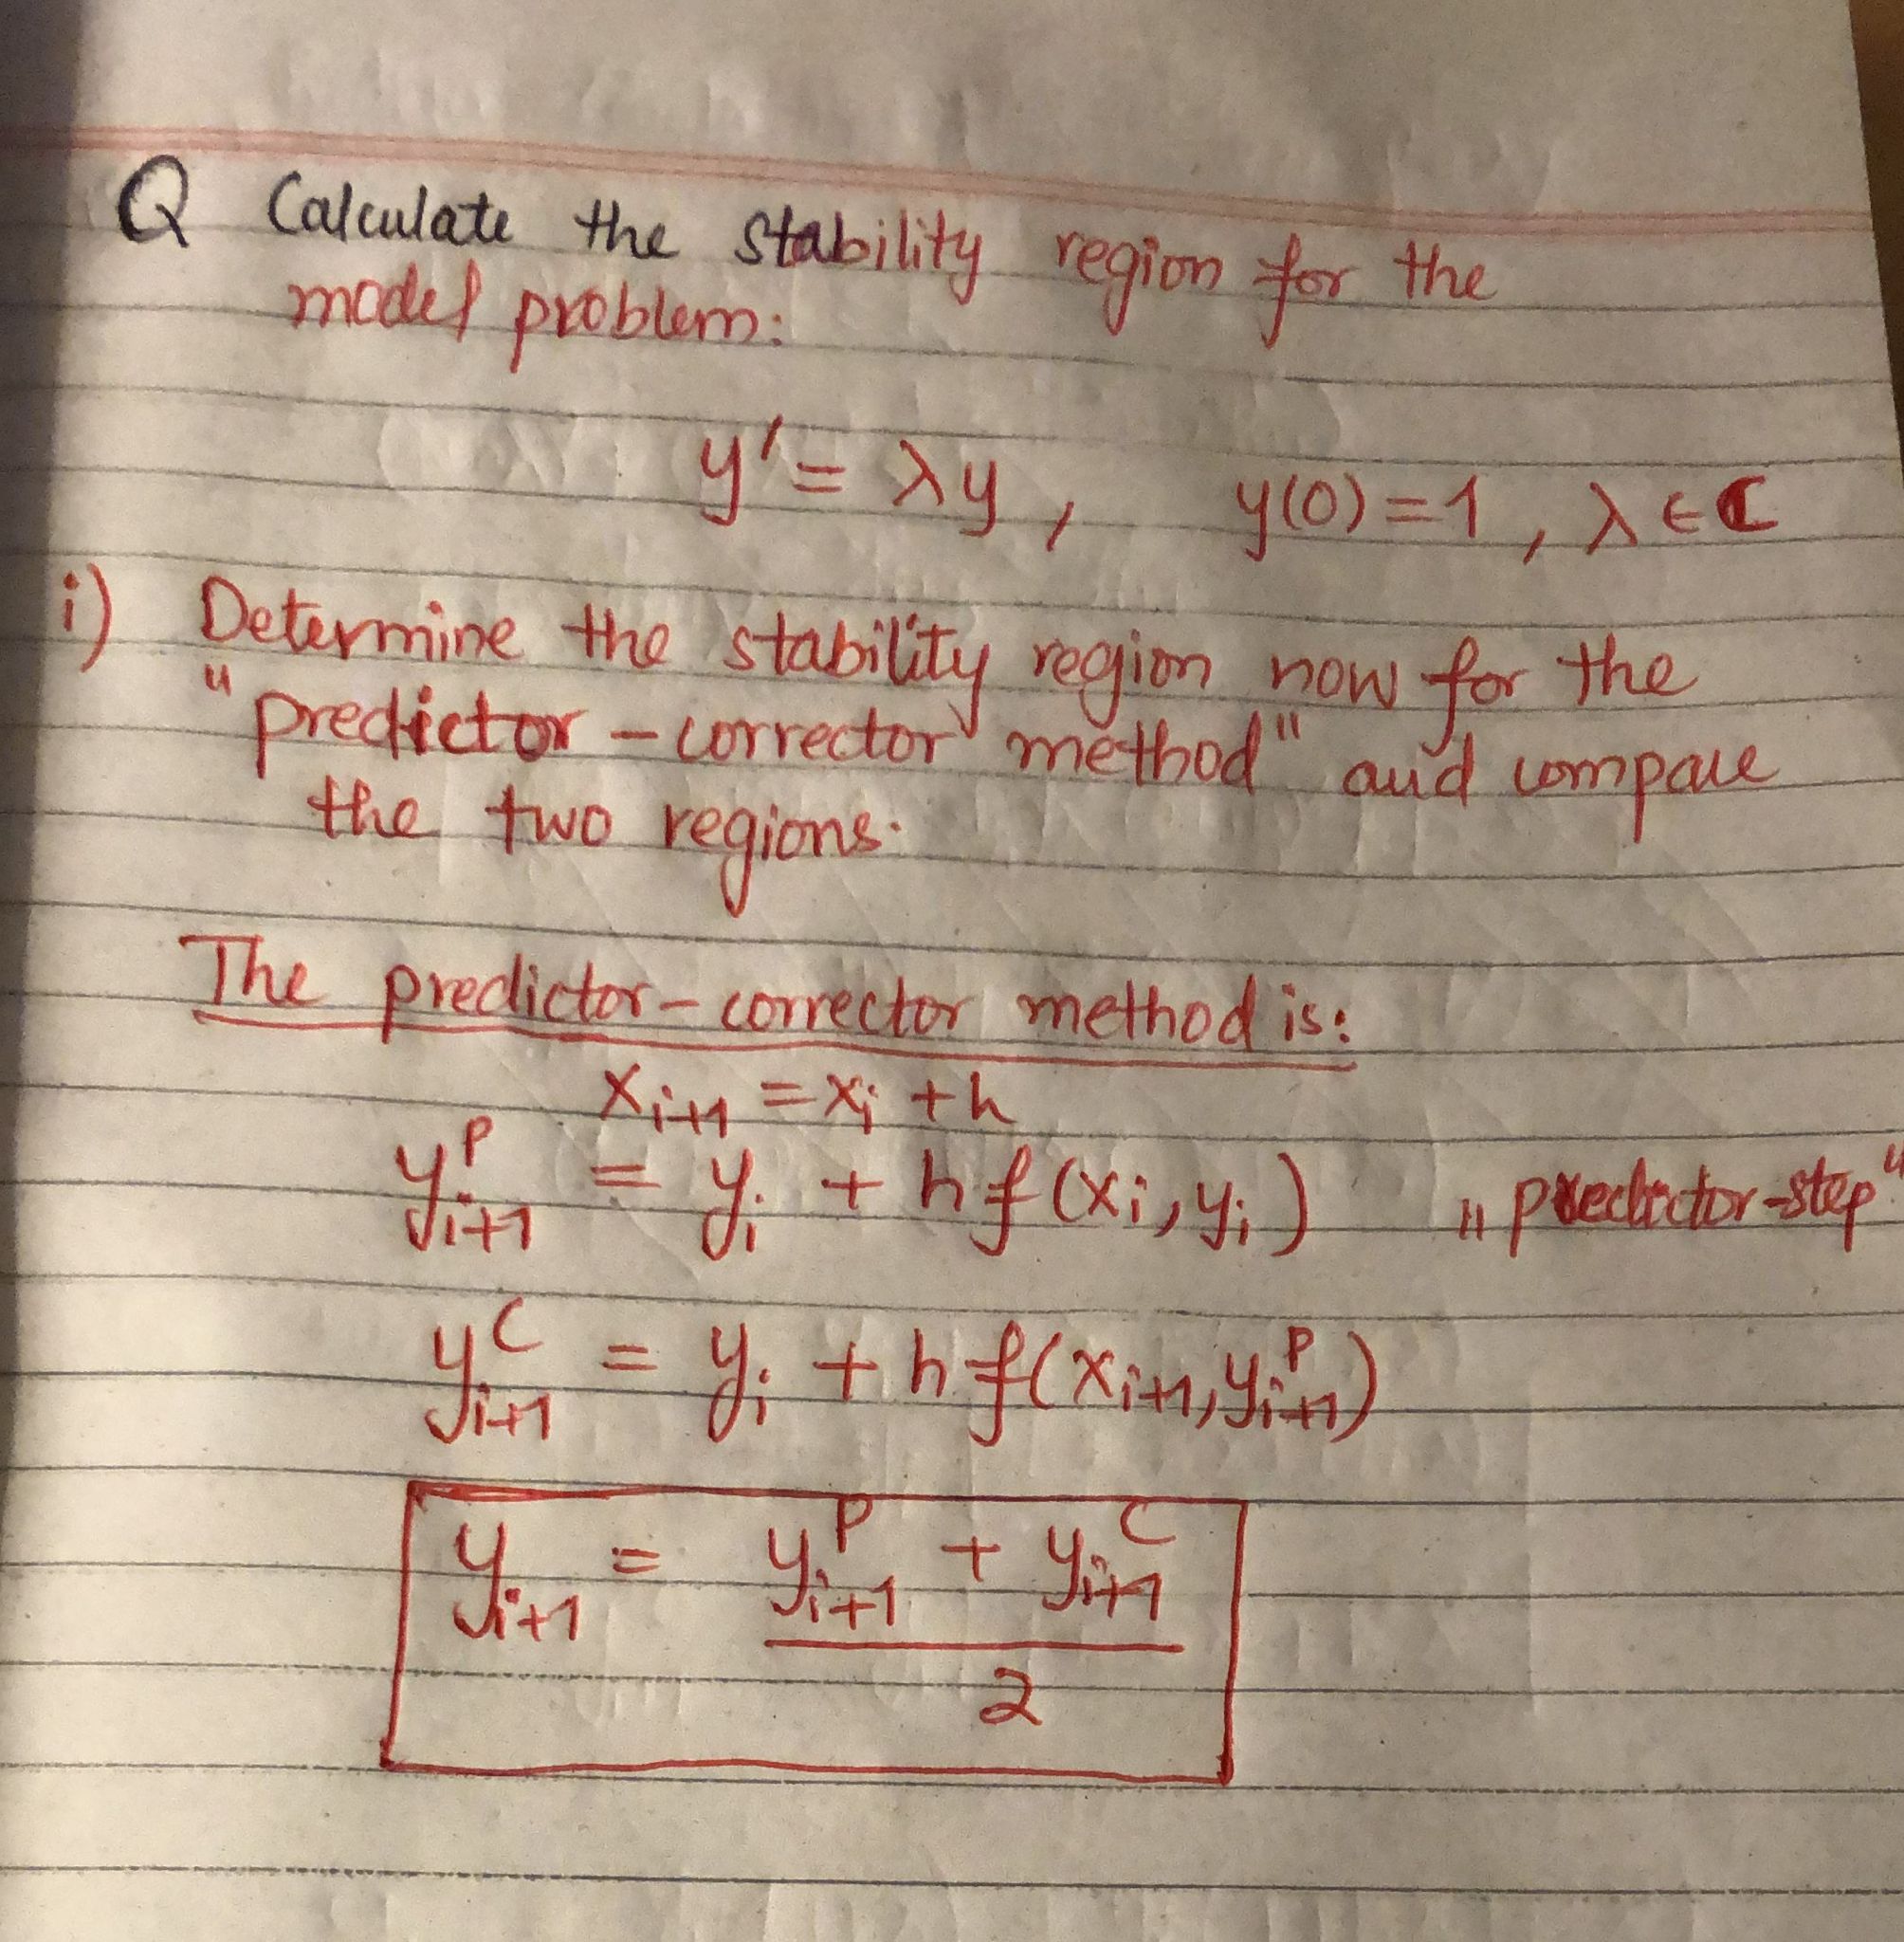 Q Calculate the stability region for the
model problem:
y' = λy , y(0) = 1 , λ ∈ ℂ
i) Determine the stability region now for the
"predictor-corrector method" and compare
the two regions.
The predictor-corrector method is:
xᵢ₊₁ = xᵢ + h
yᵢ₊₁ᴾ = yᵢ + h f(xᵢ, yᵢ) „predictor-step"
yᵢ₊₁ᶜ = yᵢ + h f(xᵢ₊₁, yᵢ₊₁ᴾ)
yᵢ₊₁ = yᵢ₊₁ᴾ + yᵢ₊₁ᶜ
2